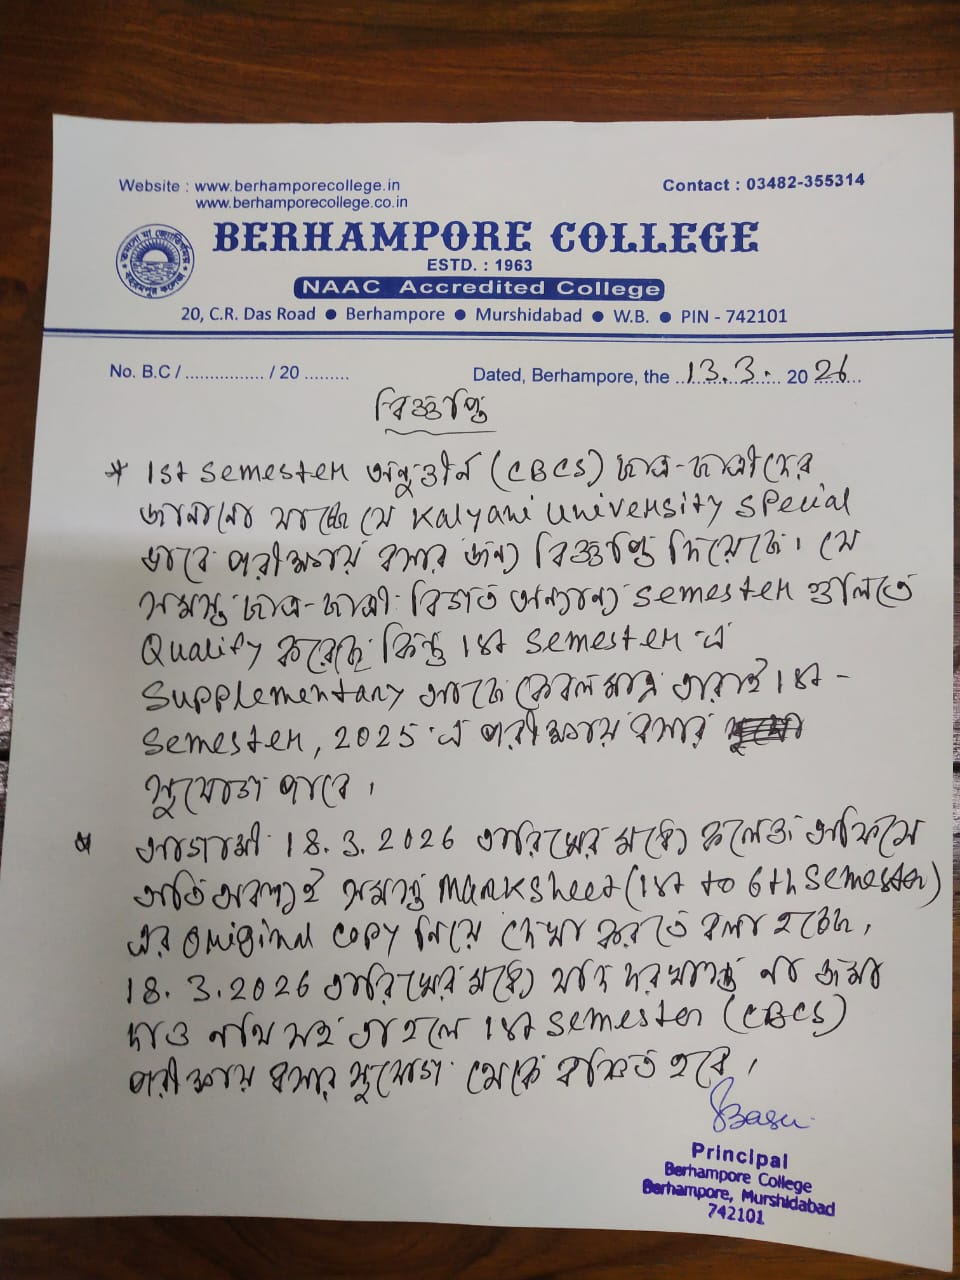 Website : www.berhamporecollege.in
www.berhamporecollege.co.in
Contact : 03482-355314
BERHAMPORE COLLEGE
ESTD. : 1963
NAAC Accredited College
20, C.R. Das Road ● Berhampore ● Murshidabad ● W.B. ● PIN - 742101
No. B.C / ................ / 20 .........
Dated, Berhampore, the 13.3. 2026
বিজ্ঞপ্তি
* 1st semester অনুত্তীর্ন (CBCS) ছাত্র-ছাত্রীদের
জানানো যাচ্ছে যে Kalyani University special
ভাবে পরীক্ষায় বসার জন্য বিজ্ঞপ্তি দিয়েছে। যে
সমস্ত ছাত্র-ছাত্রী বিগত অন্যান্য semester গুলিতে
Qualify করেছে কিন্তু 1st semester এ
supplementary আছে কেবলমাত্র তারাই 1st -
semester, 2025 এ পরীক্ষায় বসার
সুযোগ পাবে।
* আগামী 18.3.2026 তারিখের মধ্যে কলেজ অফিসে
অতি অবশ্যই সমস্ত marksheet (1st to 6th semester)
এর original copy নিয়ে দেখা করতে বলা হচ্ছে।
18.3.2026 তারিখের মধ্যে যদি দরখাস্ত না জমা
দাও নথি সহ তাহলে 1st semester (CBCS)
পরীক্ষায় বসার সুযোগ থেকে বঞ্চিত হবে।
Basu
Principal
Berhampore College
Berhampore, Murshidabad
742101